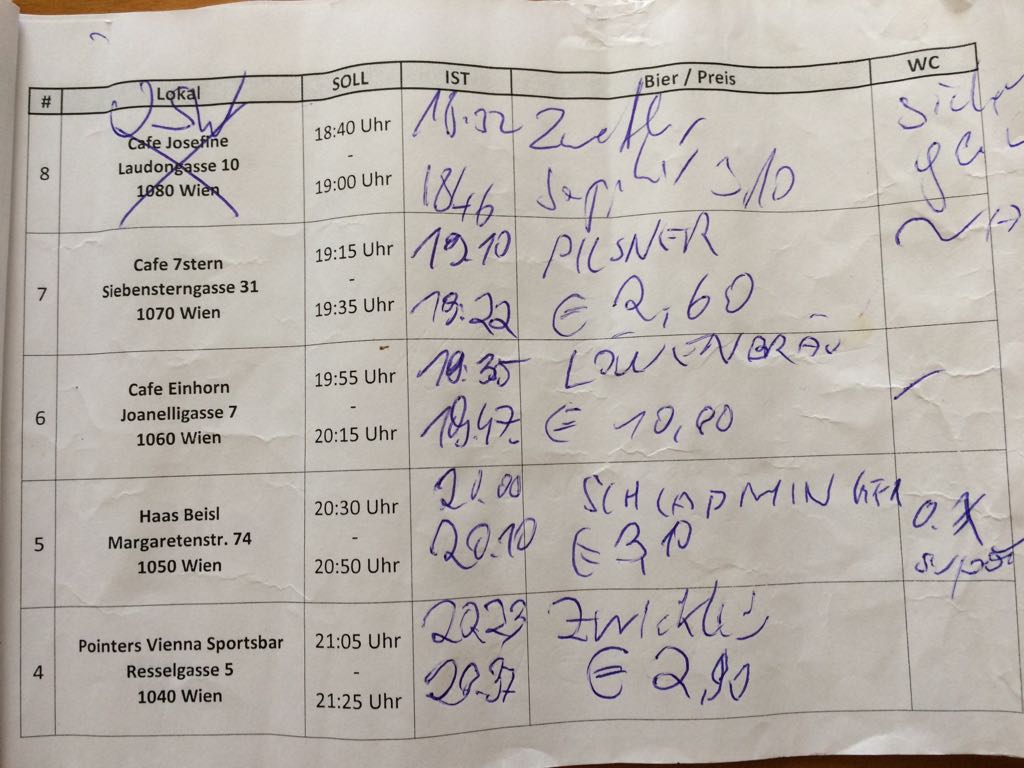 # Lokal SOLL IST Bier / Preis WC
8
Cafe Josefine
Laudongasse 10
1080 Wien
18:40 Uhr
-
19:00 Uhr
18:32
1846
3,10
7
Cafe 7stern
Siebensterngasse 31
1070 Wien
19:15 Uhr
-
19:35 Uhr
1910
19:22
PILSNER
€ 2,60
6
Cafe Einhorn
Joanelligasse 7
1060 Wien
19:55 Uhr
-
20:15 Uhr
19:35
19.47
LÖWENBRÄU
€ 10,80
5
Haas Beisl
Margaretenstr. 74
1050 Wien
20:30 Uhr
-
20:50 Uhr
20.00
20.10
SCHLADMINGER
€ 3,10
super
4
Pointers Vienna Sportsbar
Resselgasse 5
1040 Wien
21:05 Uhr
-
21:25 Uhr
2023
20.37
Zwickl
€ 2,90